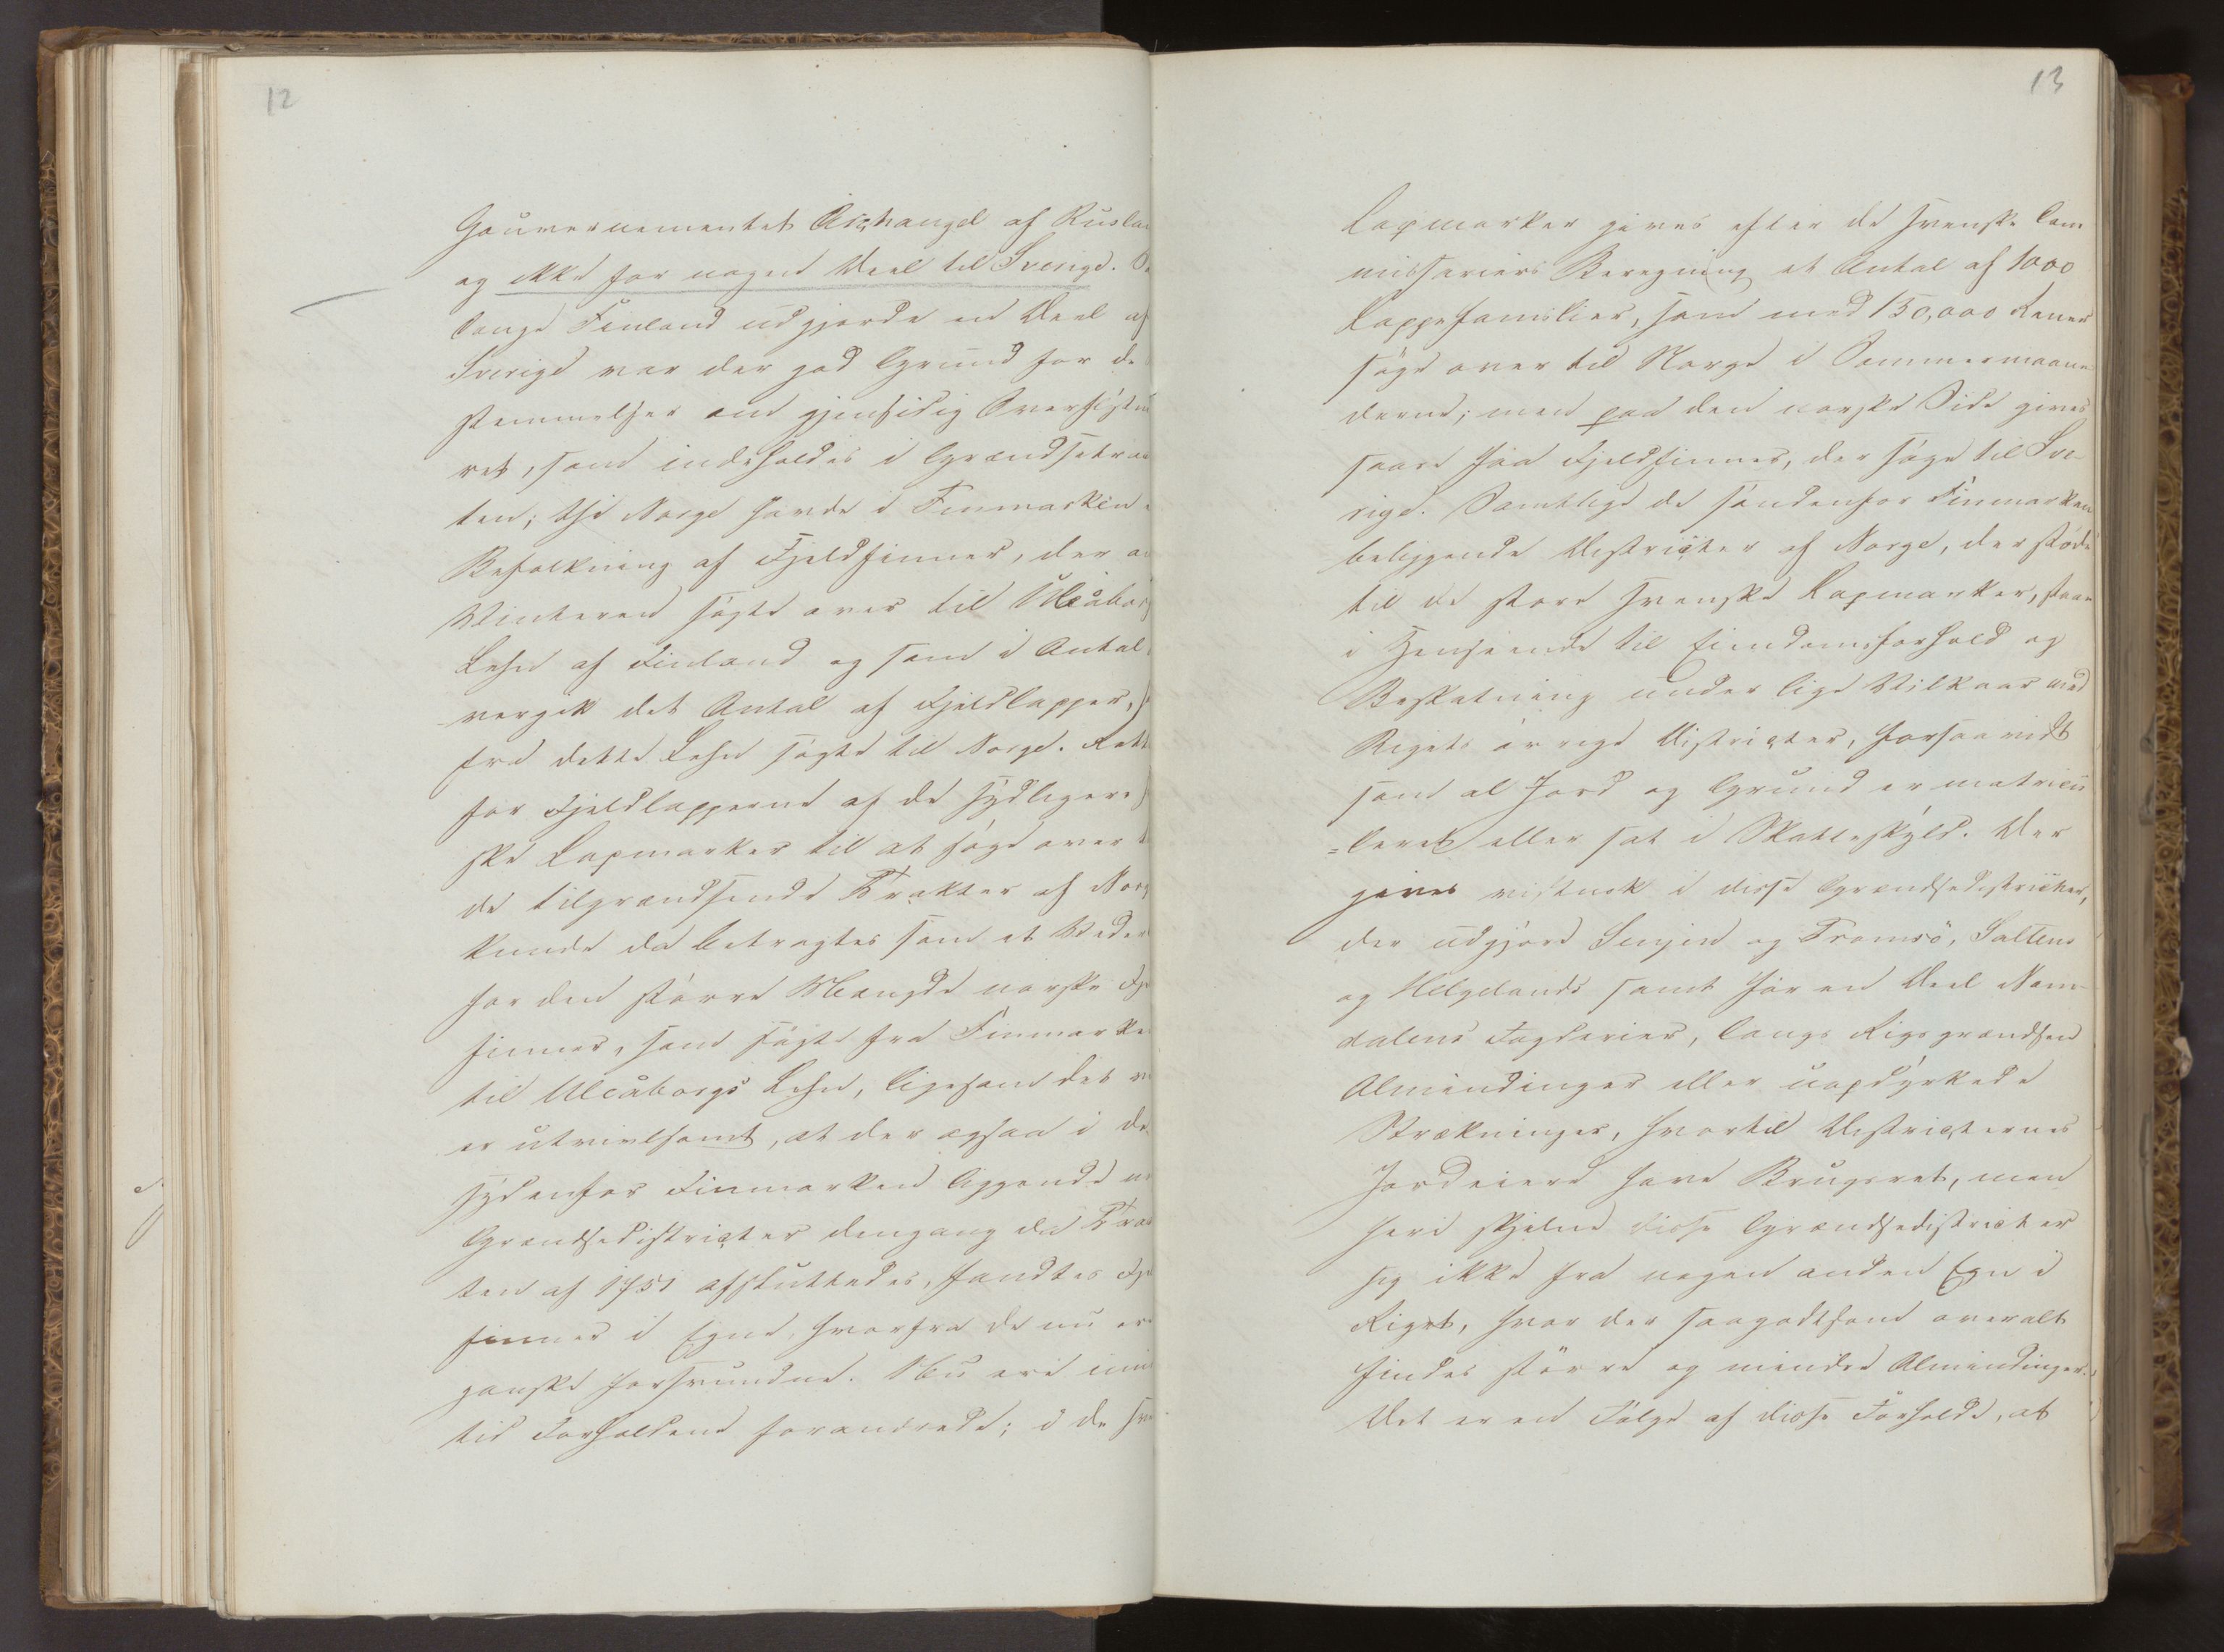 12
Gouvernementet Archangel af Rusla
og ikke for nogen Deel til Sverige.
længe Finland udgjorde en Deel af
Sverige var der god Grund for de
stemmelser om gjensidig Overflytn
ret, som indeholdes i Grændsetra
ten; thi Norge havde i Finmarken
Befolkning af Fjeldfinner, der o
Vinteren søgte over til Uleåborg
Lehn af Finland og som i Antal
vergik det Antal af Fjeldlapper,
fra dette Lehn søgte til Norge. Ret
for Fjeldlapperne af de sydligere
ske Lapmarker til at søge over t
de tilgrændsende Trakter af Norg
kunde da betragtes som et Veder
for den større Mængde norske Fje
finner, som søgte fra Finmarke
til Uleåborgs Lehn, ligesom det
er utvivlsomt, at der ogsaa i de
sydenfor Finmarken liggende
Grændsedistricter dengang da Tra
ten af 1751 afsluttedes, fandtes Fje
finner i Egne, hvorfra de nu er
ganske forsvundne. Nu ere imid
tid Forholdene forandrede; i de sv
13
Lapmarker gives efter de svenske Com
missariers Beregning et Antal af 1000
Lappefamilier, som med 150,000 Rener
søge over til Norge i Sommermaane
derne; men paa den norske Side gives
saare faa Fjeldfinner, der søge til Sve-
rige. Samtlige de søndenfor Finmarken
beliggende Districter af Norge, der støde
til de store svenske Lapmarker, staae
i Henseende til Eiendomsforhold og
Beskatning under lige Vilkaar med
Rigets øvrige Districter, forsaavidt
som al Jord og Grund er matricu
=leret eller sat i Skatteskyld. Der
gives vistnok i disse Grændsedistricter,
der udgjøre Senjen og Tromsö, Saltens
og Helgelands samt for en Deel Nam-
dalens Fogderier, langs Rigsgrændsen
Almindinger eller uopdyrkede
Strækninger, hvortil Districternes
Jordeiere have Brugsret, men
heri skjelne disse Grændsedistricter
sig ikke fra nogen anden Egn i
Riget, hvor der saagodtsom overalt
findes større og mindre Almindinger.
Det er en Følge af disse Forholde, at